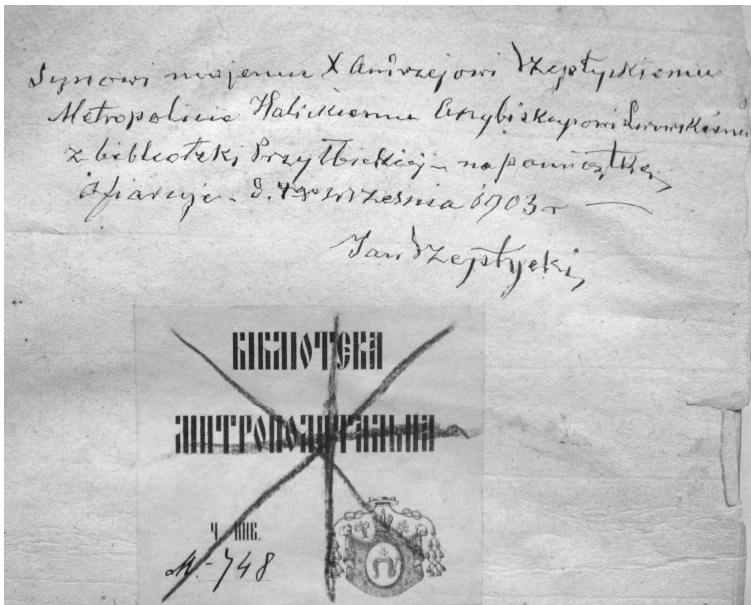 Synowi mojemu X Andrzejowi Szeptyckiemu
Metropolicie Halickiemu Arcybiskupowi Lwowskiemu
z biblioteki Przyłbickiej – na pamiątkę
Ofiaruje – d. września 1903 r
Jan Szeptycki
БІБЛІОТЕКА
МИТРОПОЛИТАЛЬНА
Ч. ИНВ.
М.-748